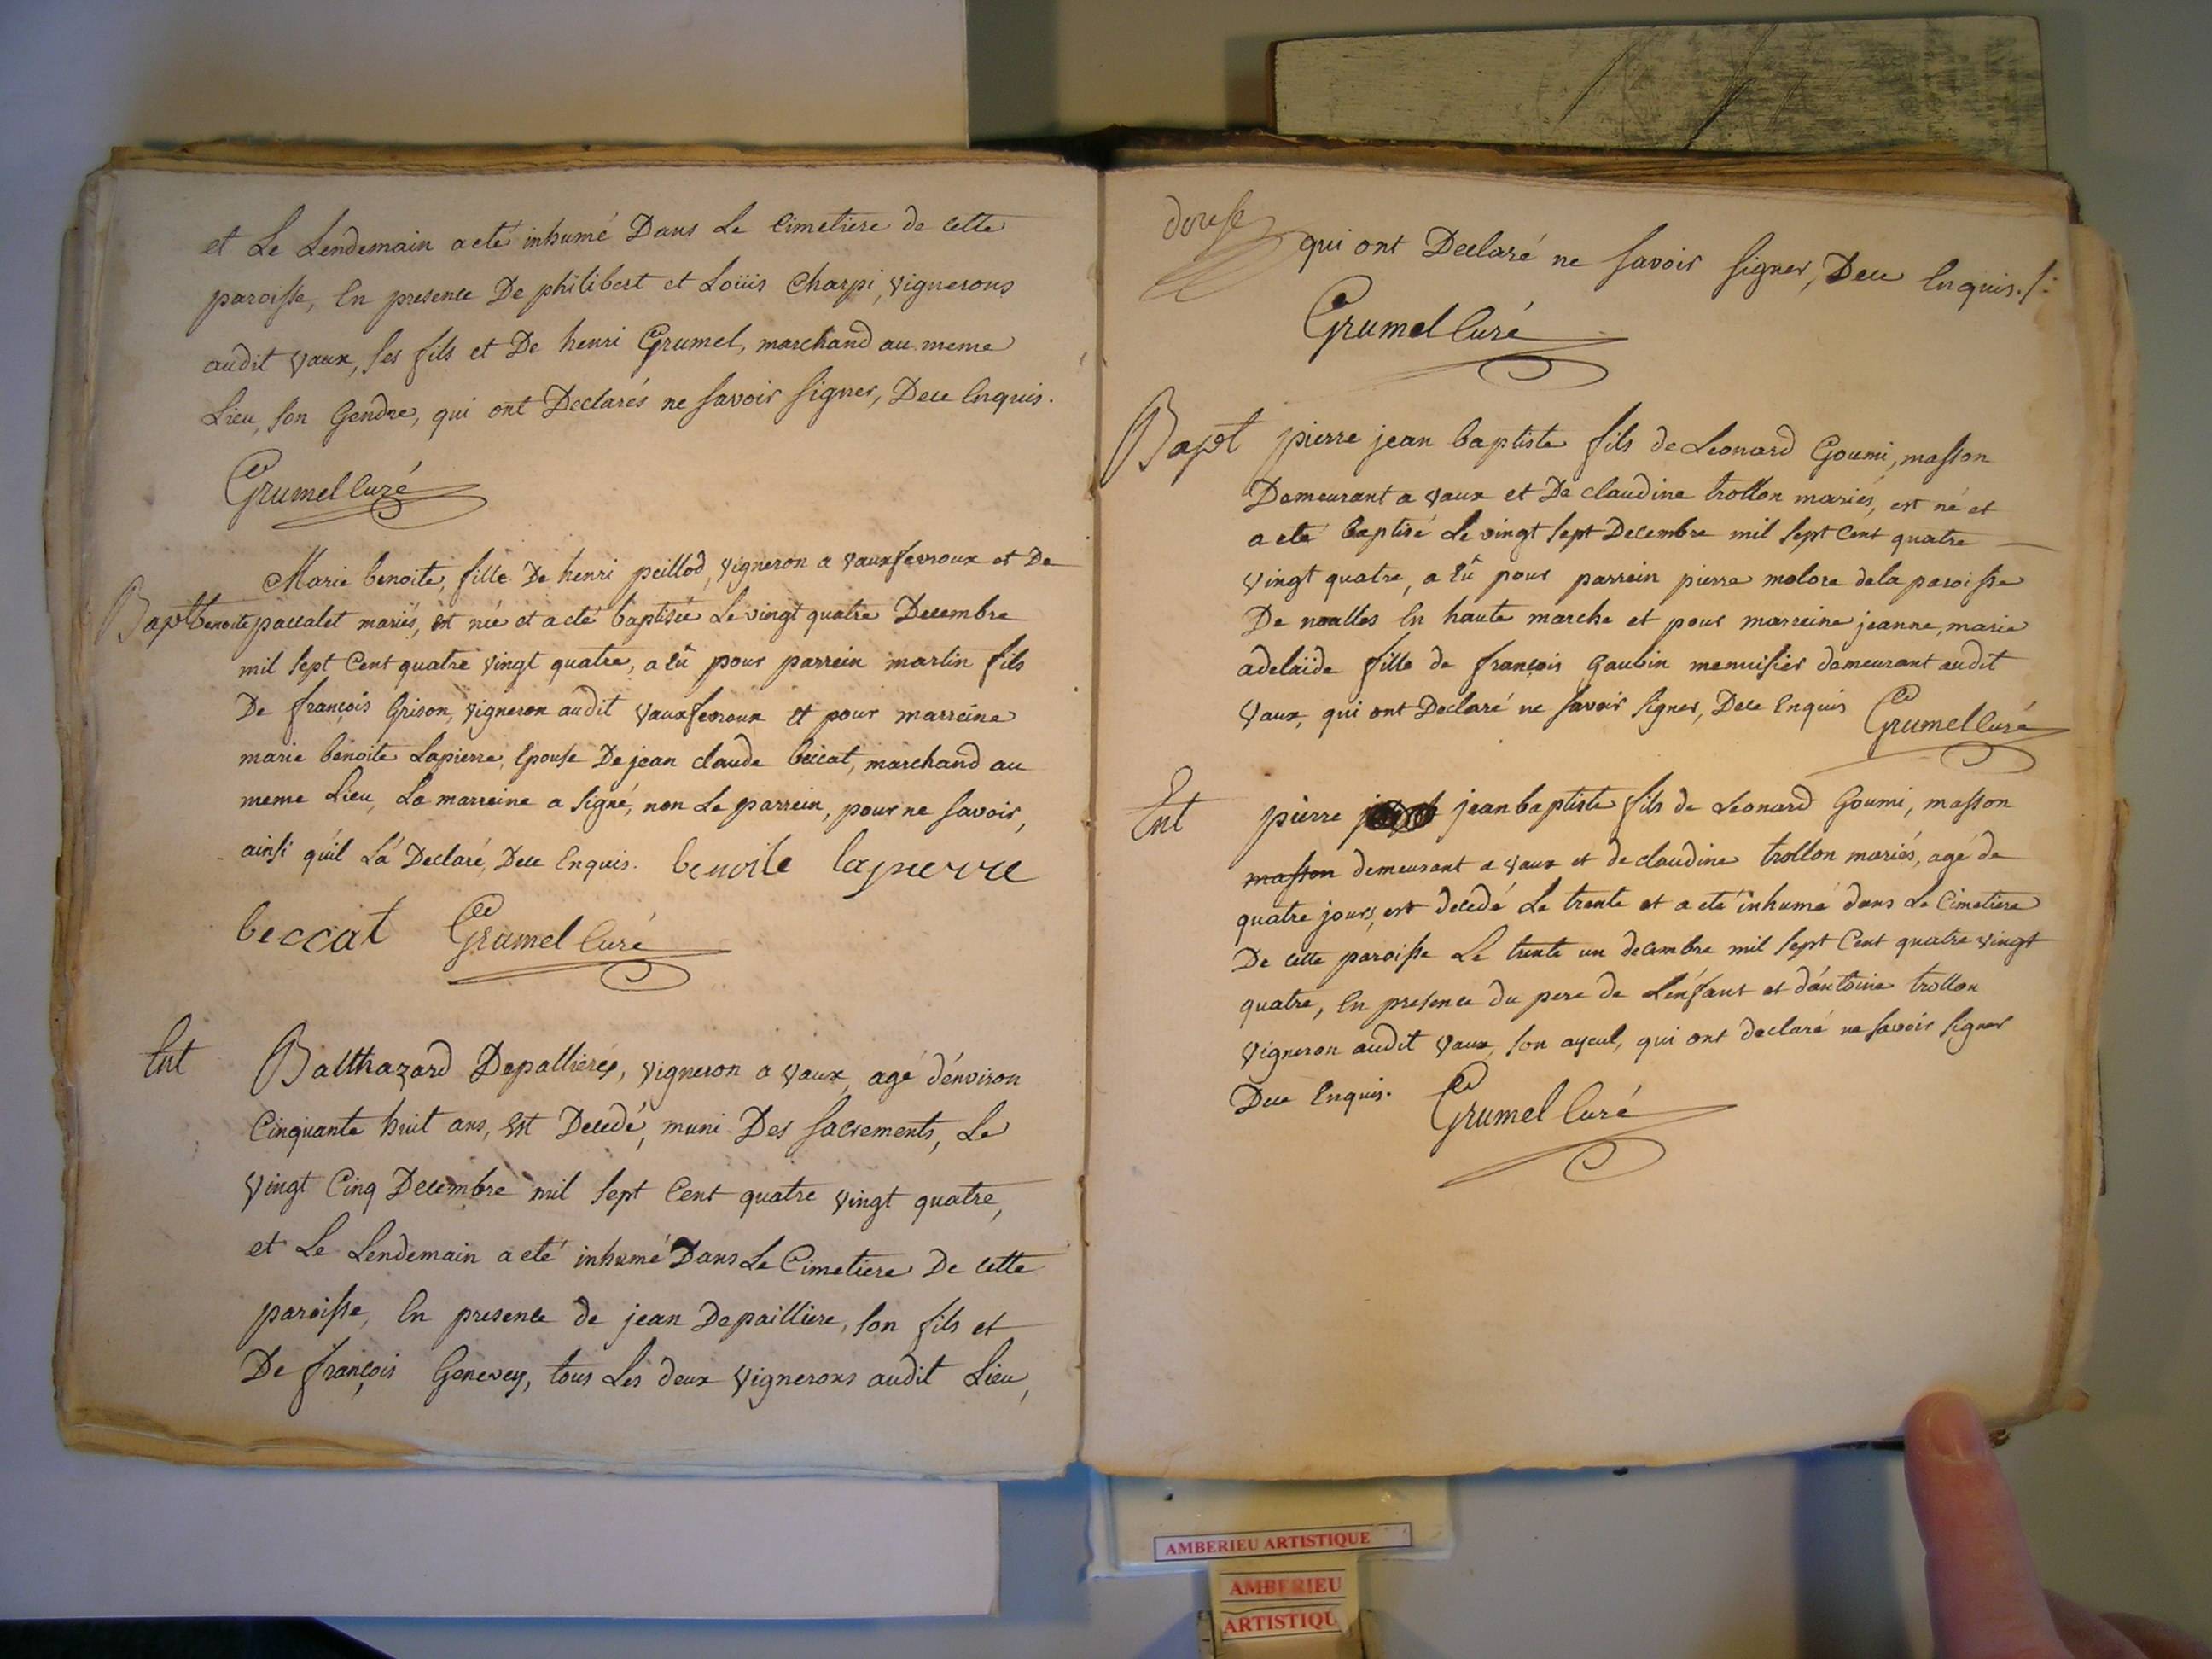 et Le Lendemain a eté inhumé Dans Le Cimetiere de cette
paroisse, En presence De philibert et Loüis Charpi, vignerons
audit vaux, ses fils et De henri Grumel, marchand au meme
Lieu, son Gendre, qui ont Declarés ne savoir signer, Dece Enquis.
Grumel Curé
Marie benoite, fille De henri peillod, vigneron a vauxfevroux et De
Bapt benoite paccalet mariés, est née et a eté baptisée Le vingt quatre Decembre
mil sept Cent quatre vingt quatre, a Eû pour parrein martin fils
De françois Grison, vigneron audit vauxfevroux et pour marreine
marie benoite Lapierre, Epouse De jean claude beccat, marchand au
meme Lieu, La marreine a signé, non Le parrein, pour ne savoir,
ainsi qu'il L'a Declaré, Dece Enquis. benoite lapierre
beccat Grumel Curé
Ent Balthazard Depallieres, vigneron a vaux, agé d'environ
Cinquante huit ans, est Decedé, muni Des sacrements, Le
vingt Cinq Decembre mil sept Cent quatre vingt quatre,
et Le Lendemain a eté inhumé Dans Le Cimetiere De cette
paroisse, En presence de jean Depailliere, son fils et
De françois Genevey, tous Les deux vignerons audit Lieu,
qui ont Declaré ne savoir signer, Dece Enquis ./.
Grumel Curé
Bapt pierre jean baptiste fils de Leonard Goumi, masson
Demeurant a vaux et De claudine trollon mariés, est né et
a eté baptisé Le vingt sept Decembre mil sept Cent quatre
vingt quatre, a Eû pour parrein pierre malore de la paroisse
De En haute marche et pour marreine jeanne, marie
adelaïde fille de françois Gaubin menuisier demeurant audit
vaux, qui ont Declaré ne savoir signer, Dece Enquis Grumel Curé
Ent pierre jean baptiste fils de Leonard Goumi, masson
masson demeurant a vaux et de claudine trollon mariés, agé de
quatre jours, est decedé Le trente et a eté inhumé dans Le Cimetiere
De cette paroisse Le trente un decembre mil sept Cent quatre vingt
quatre, En presence du pere de L'enfant et d'antoine trollon
vigneron audit vaux, son ayeul, qui ont declaré ne savoir signer
Dece Enquis. Grumel Curé
AMBERIEU ARTISTIQUE
AMBERIEU
ARTISTIQU